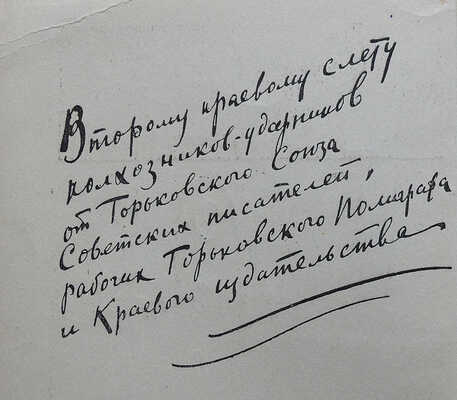 Второму краевому слету
колхозников-ударников
от Горьковского Союза
Советских писателей,
рабочих Горьковского Полиграфа
и Краевого издательства